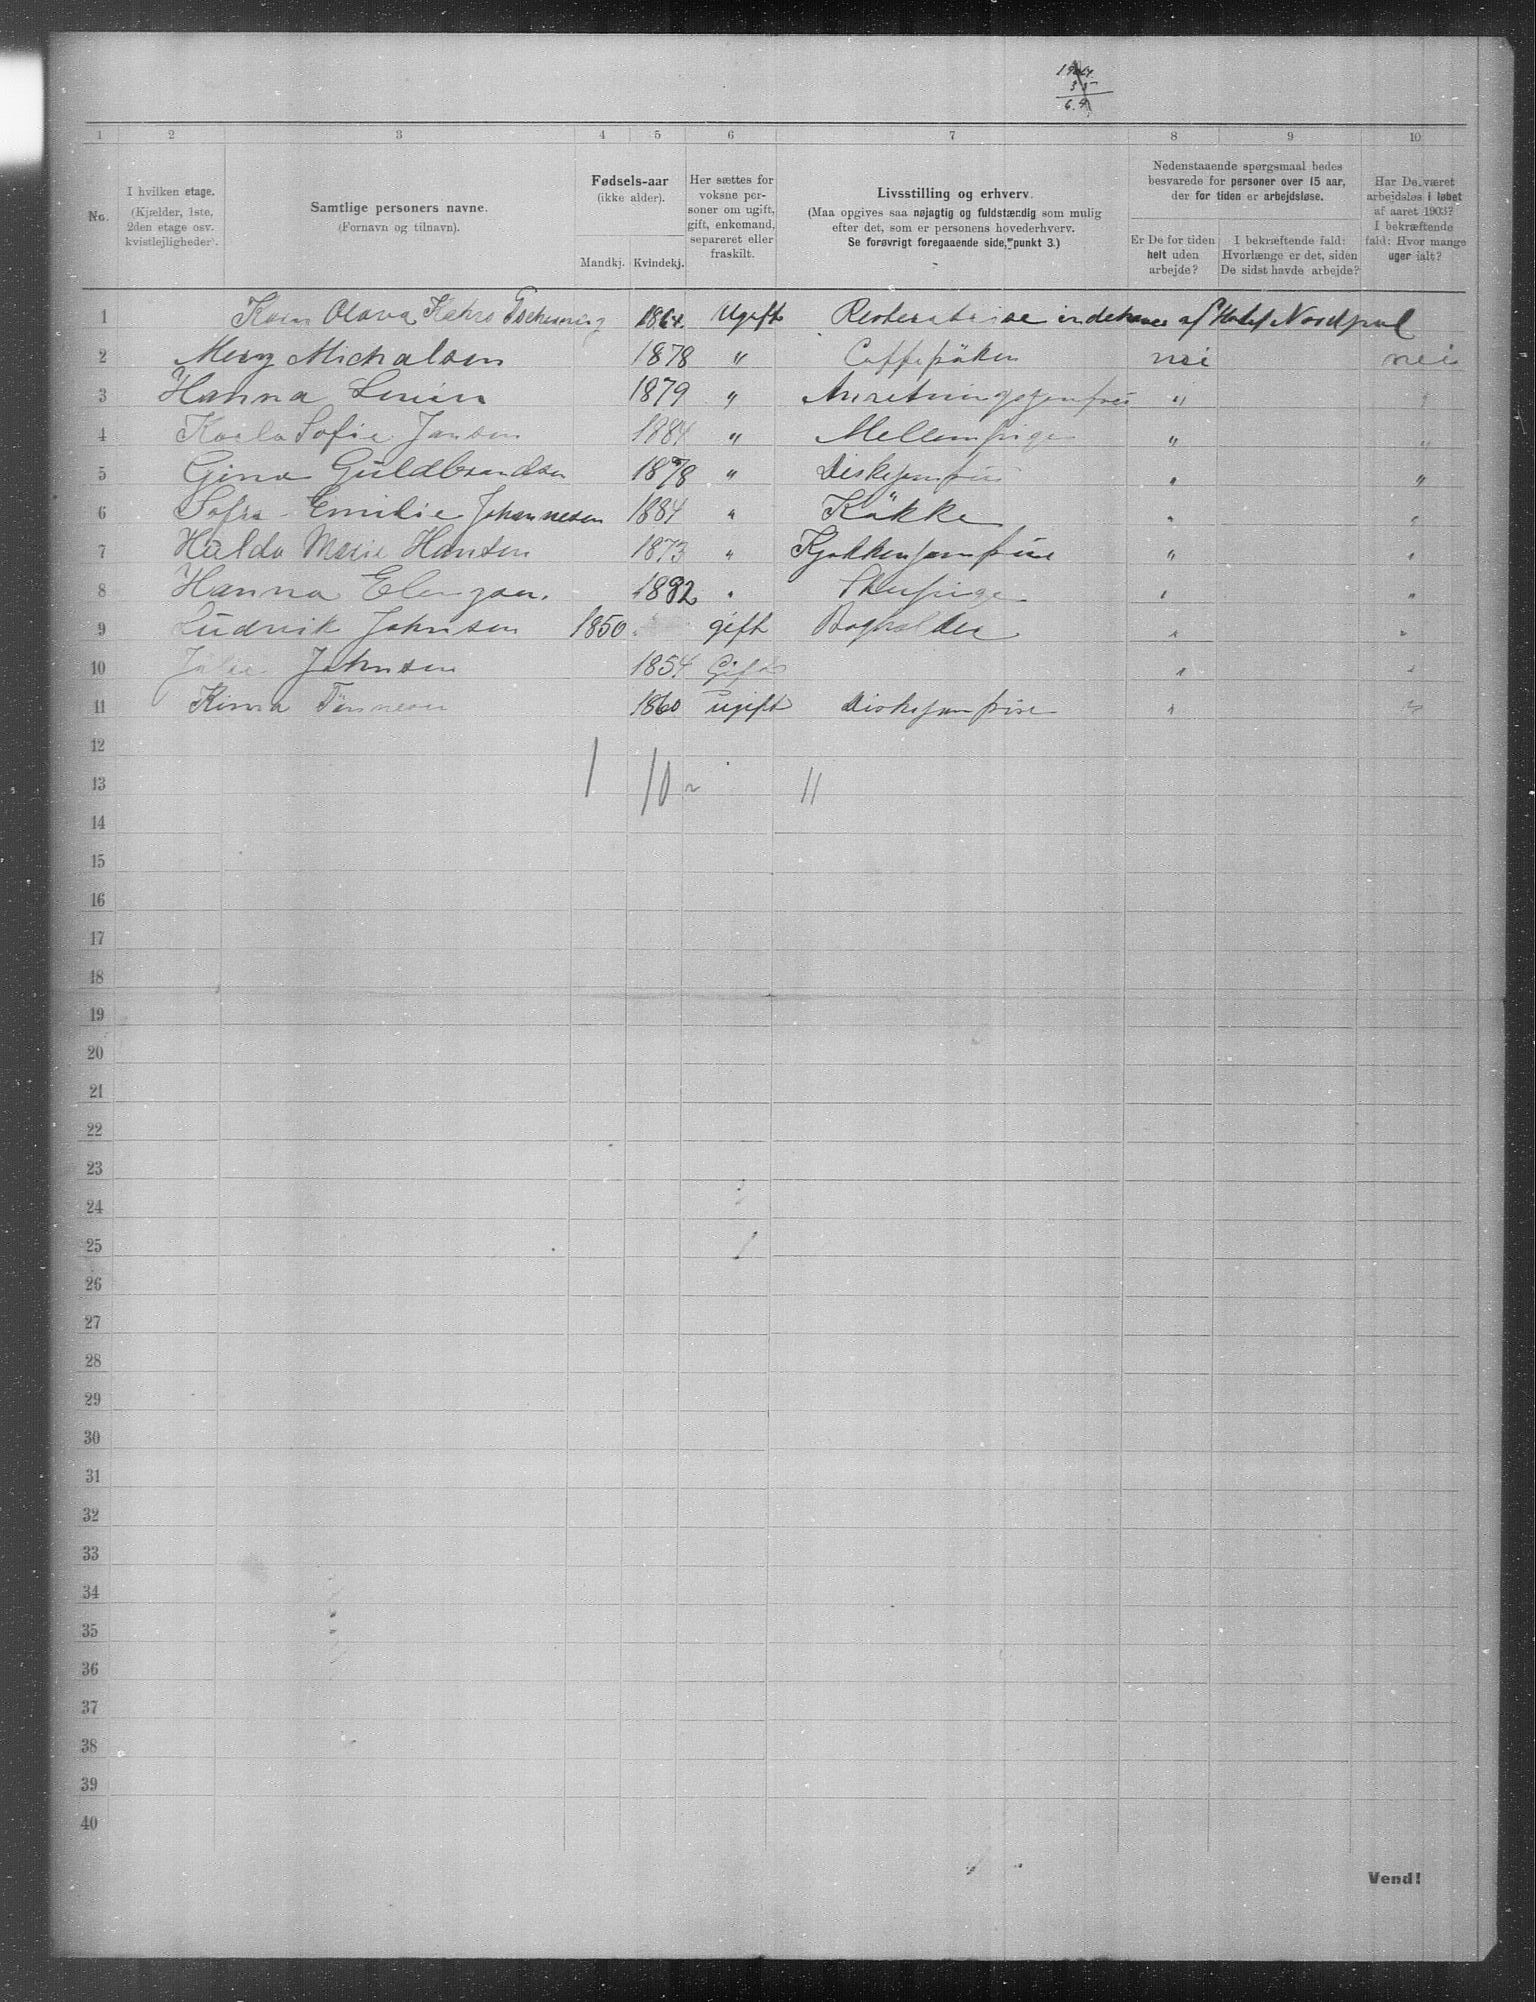 1 2 3 4 5 6 7 8 9 10
No.
I hvilken etage.
(Kjælder, 1ste,
2den etage osv.
kvistlejligheder).
Samtlige personers navne.
(Fornavn og tilnavn).
Fødsels-aar
(ikke alder).
Mandkj. Kvindekj.
Her sættes for
voksne per-
soner om ugift,
gift, enkemand,
separeret eller
fraskilt.
Livsstilling og erhverv.
(Maa opgives saa nøjagtig og fuldstændig som mulig
efter det, som er personens hovederhverv.
Se forøvrigt foregaaende side, punkt 3.)
Nedenstaaende spørgsmaal bedes
besvarede for personer over 15 aar,
der for tiden er arbejdsløse.
Er De for tiden
helt uden
arbejde?
I bekræftende fald:
Hvorlænge er det, siden
De sidst havde arbejde?
Har De været
arbejdsløs i løbet
af aaret 1903?
I bekræftende
fald: Hvor mange
uger ialt?
1 Olava 1864 Ugift af Hotel Nordpol
2 Mery Michalsen 1878 " nei nei
3 Hanna 1879 " "
4 Karla Sofie Jansen 1884 " Mellempige " "
5 Gina Guldbrandsen 1878 " Diskjomfru " "
6 Sofie Emilie Johannesen 1884 " Kökke " "
7 Hulda Marie Hansen 1873 " " "
8 Hanna 1882 " " "
9 Ludvik Johnsen 1850 gift Bogholder " "
10 Johnsen 1854 Gift " "
11 Tönnesen 1860 ugift " "
12
13 1 10 11
14
15
16
17
18
19
20
21
22
23
24
25
26
27
28
29
30
31
32
33
34
35
36
37
38
39
40
Vend!